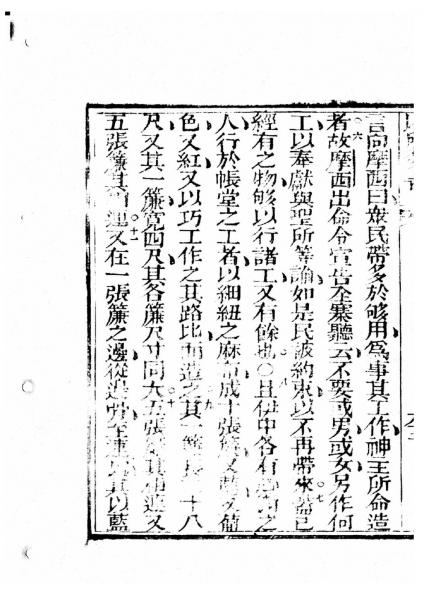 言向摩西曰衆民帶多於够用為事其工作神主所命造
者故摩西出命令宣告全寨聽云不要或男或女另作何
工以奉獻與聖所等諭如是民被約束以不再帶來蓋已
經有之物够以行諸工又有餘也○且伊中各有之
人行於帳堂之工者以細紐之蔴布成十張簾又藍又
色又紅又以巧工作之其路比而造之其一簾二十八
尺又其一簾寬四尺其各簾尺寸同六五張簾其相連又
五張簾其相連又在一張簾之邊從邊至連以藍